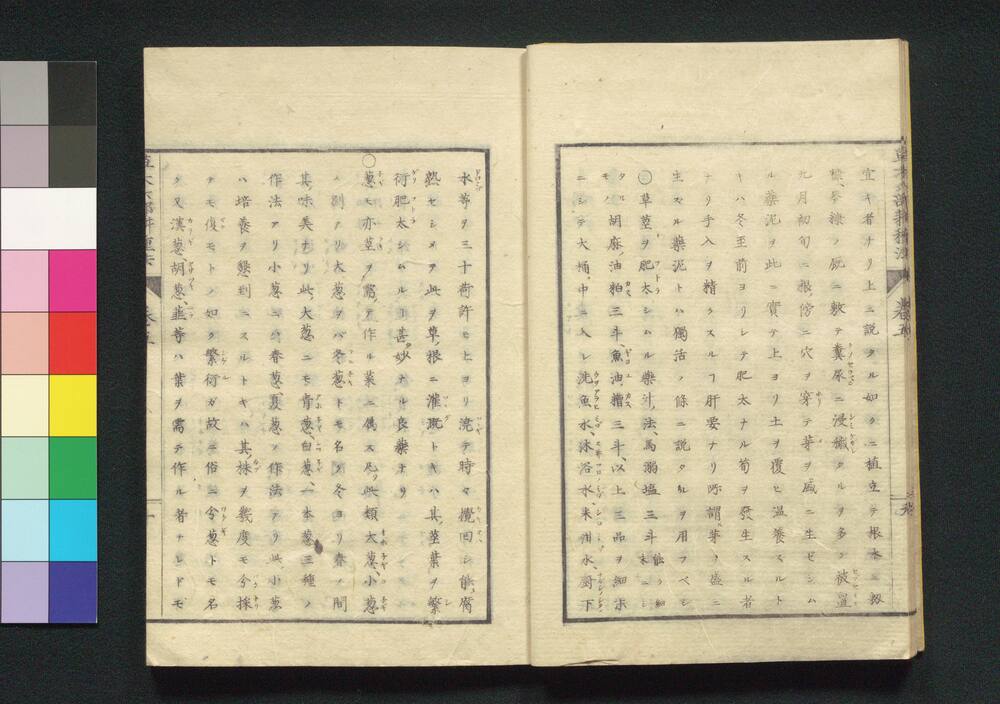 宜キ者ナリ上ニ説タル如クニ植立テ根本ニ籾
糠、麥稈ノ類ニ敷テ糞尿ニ浸醎タルヲ多ク被置
九月初旬ニ根傍ニ穴ヲ穿テ芽ヲ盛ニ生ゼシム
ル藥泥ヲ此ニ實テ上ヨリ土ヲ覆ヒ温養スルト
キハ冬至前ヨリシテ肥太ナル筍ヲ發生スル者
ナリ手入ヲ精クスルヿ肝要ナリ所謂芽ノ盛ニ
生スル藥泥トハ獨活ノ條ニ説タルヲ用フベシ
〇草莖ヲ肥太シムル藥汁ノ法、馬溺塩三斗 能ク細末ニシ
タル胡麻ノ油粕三斗、魚油糟三斗、以上三品ヲ細末
ニシテ大桶ノ中ニ入レ洗魚水、沐浴水、米泔水、厨下
水等ヲ三十荷許モ上ヨリ澆テ時々攪回シ能ク腐
熟セシメテ此ヲ草ノ根ニ灌漑トキハ其莖葉ヲ繁
衍肥太シムルヿ甚妙ナル良藥ナリ
〇葱モ亦莖ヲ需テ作ル菜ニ属ス凡ソ此類大葱、小葱
ノ別アリ大葱ヲバ冬葱トモ名ク冬ヨリ春ノ間
其味美ナリ此大葱ニモ青葱、白葱、一本葱三種ノ
作法アリ小葱ニハ春葱、夏葱ノ作法アリ此小葱
ハ培養ヲ懇到ニスルトキハ其株ヲ幾度モ分採
テモ復モトノ如ク繁衍ガ故ニ俗ニ分葱トモ名
ク又漢葱、胡葱、韮等ハ葉ヲ需テ作ル者ナレドモ